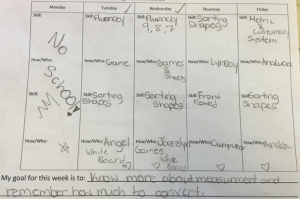 Monday Tuesday Wednesday Thursday Friday
Skill: Skill: Fluencey Skill: Fluencey Skill: Sorting Skill: Metric
9,8,7 Shapes &
customary
System
No
School!
How/Who: How/Who: Game How/Who: Games How/Who: Lynday How/Who: Analucia
&
Sheets
Skill: Skill: Sorting Skill: Sorting Skill: Front Skill: Sorting
Shapes Shapes Rowed Shapes
How/Who: How/Who: Angel How/Who: How/Who: How/Who: Annika
White Games
Board White
Board
My goal for this week is to: Know more about measurment and
remember how much to convert.